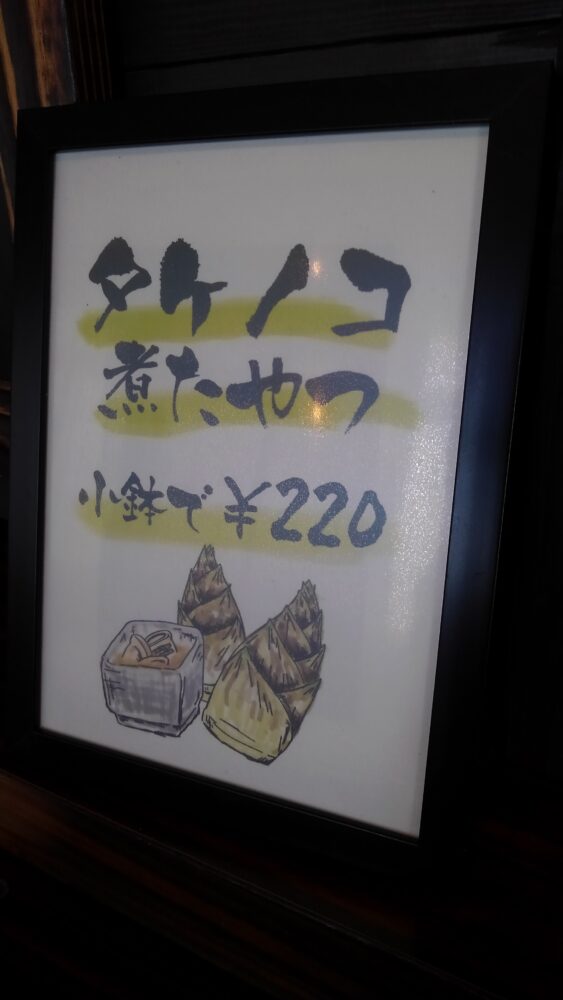 タケノコ
煮たやつ
小鉢で¥220